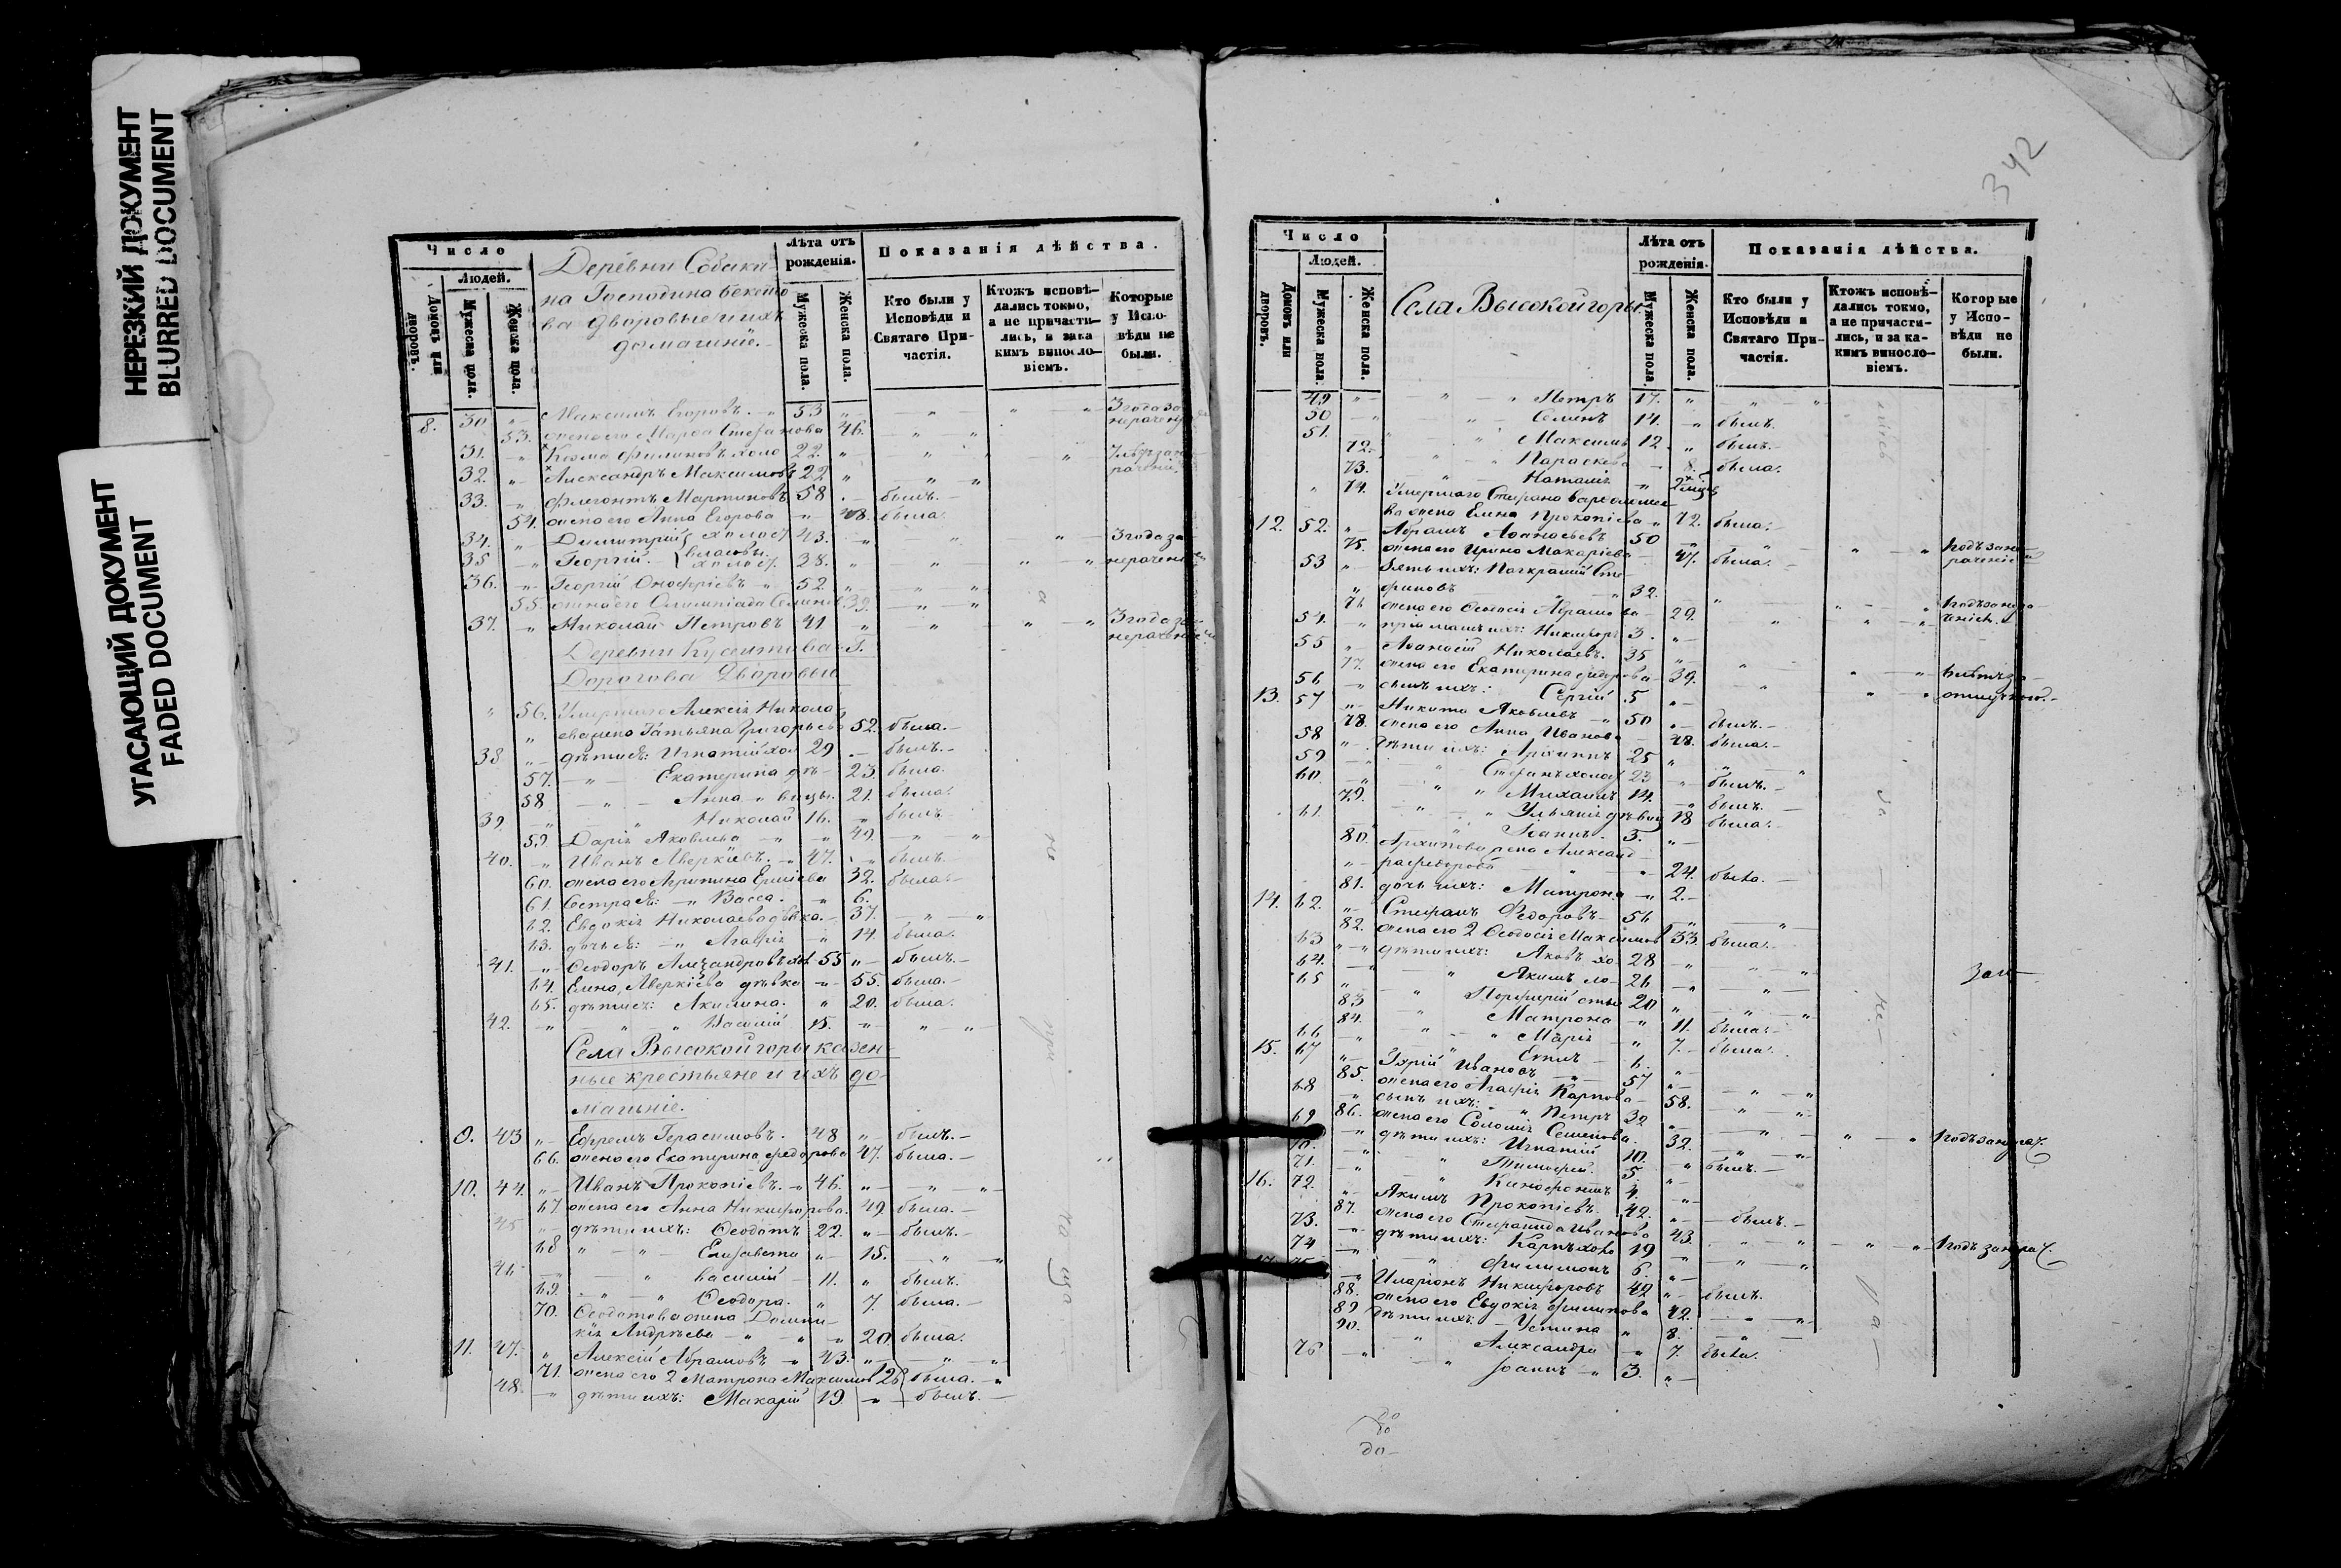 НЕРЕЗКИЙ ДОКУМЕНТ
BLURRED DOCUMENT
УГАСАЮЩИЙ ДОКУМЕНТ
FADED DOCUMENT
Число
Людей.
Домовъ или дворовъ.
Мужеска пола.
Женска пола.
Деревни Собаки-
на Господина Бекето
ва дворовые и ихъ
домашніе.
Лѣта отъ рожденія.
Мужеска пола.
Женска пола.
Показанія дѣйства.
Кто были у Исповѣди и Святаго Причастія.
Ктожъ исповѣдались токмо, а не причастились, и за какимъ винословіемъ.
Которые у Исповѣди не были.
8. 30 Максимъ Егоровъ. 53 3 года за
53. жена его Марѳа Стефанова 46. нерачен
31. Козма Филиповъ холо 22
32. Александръ Максимовъ 22
33. Флегонтъ Мартиновъ 58 былъ.
54. жена его Анна Егорова 48. была.
34. Димитрій холост 43. 3 года за
35 Георгій. Власовы. холост. 28. нерачен
36. Георгій Онофріевъ 52.
55. жена его Олимпіада Семенов 39.
37. Николай Петровъ 41 3 года за
нерачен
Деревни Кусеитова Г.
Дорогова Дворовые
56. Умершаго Алексія Никола-
ева жена Татьяна Григорьева 52. была.
38 дѣти ея: Игнатій хол 29 былъ.
57. Екатерина дѣ- 23. была.
58 Анна вицы. 21. была.
39. Николай 16. былъ
59. Дарія Яковлева 49.
40. Иванъ Аверкіевъ. 47. былъ.
60. жена его Агрипина Ермеева 32. была.
61. Сестра ея: Васса. 6.
62. Евдокія Николаева дѣвка. 37.
63. дочь ея: Агафія 14. была.
41. Ѳеодоръ Александровъ хол 55 былъ.
64. Елена Аверкіева дѣвка 55. была.
65. дѣти ея: Акилина. 20. была.
42. Василій 15.
Села Высокой горы казен-
ные крестьяне и ихъ до-
машніе.
9. 43 Ефремъ Герасимовъ. 48 былъ.
66. жена его Екатерина Федорова 47. была.
10. 44. Иванъ Прокопіевъ. 46.
67 жена его Анна Никифорова. 49 была.
45 дѣти ихъ: Ѳеодотъ 22. былъ.
68 Елисавета 15.
46 Василій 11. былъ.
69. Ѳеодора. 7. была.
70. Ѳеодотова жена Домни-
кія Андреева 20. была.
11. 47. Алексій Абрамовъ 43.
71. жена его 2 Матрона Максимов 26 была.
48. дѣти ихъ: Макарій 19. былъ.
342
Число
Людей.
Домовъ или дворовъ.
Мужеска пола.
Женска пола.
Села Высокой горы.
Лѣта отъ рожденія.
Мужеска пола.
Женска пола.
Показанія дѣйства.
Кто были у Исповѣди и Святаго Причастія.
Ктожъ исповѣдались токмо, а не причастились, и за какимъ винословіемъ.
Которые у Исповѣди не были.
49 Петръ 17.
50 Семенъ 14. былъ.
51. Максимъ 12 былъ.
72. Параскева 8. была.
73. Наталія
74. Умершаго Стефана Варѳоломее-
ва жена Елена Прокопіева 72. была.
12. 52. Абрамъ Аѳанасьевъ 50
75. жена его Ирина Макаріева 47. была. 1 годъ за не
53 Зять ихъ: Панкратій Сте- раченіе
финовъ 32.
76 жена его Ѳеодосія Абрамова 29. 1 годъ за нера-
54. пріимашъ ихъ: Никифоръ 3. ченіе.
55 Аѳанасій Николаевъ. 35
77. жена его Екатерина Федорова 39.
56 сынъ ихъ: Сергій 5 отлучкою.
13. 57 Никита Яковлевъ 50 былъ.
78. жена его Анна Иванова 48. была.
58 дѣти ихъ: Архиппъ 25
59 Стефанъ холост 23 былъ.
60. Михаилъ 14. былъ.
79. Ульянія дѣвиц 18 была.
61. Іоаннъ. 5.
80. Архипова жена Александ-
ра Федорова 24. была.
81. дочь ихъ: Матрона 2.
14. 62. Стефанъ Федоровъ 56
82. жена его 2 Ѳеодосія Максимов 33. была.
63 дѣти ихъ: Яковъ хо- 28
64. Якимъ ло- 26
65 Порфирій стые 20
83 Матрона 11. была.
84. Марія 7. была.
66 Емил 6.
15. 67 Юрій Ивановъ 57
85. жена его Агафія Карпова 58.
68 сынъ ихъ: Петръ 32
86. жена его Соломія Семенова. 32. 1 годъ за нерач.
69 дѣти ихъ: Игнатій 10. былъ.
70. Тимофей. 5.
71. Ксенофонтъ 4.
16. 72. Акимъ Прокопіевъ. 42. былъ.
87. жена его Степанида Иванова 43.
73. дѣти ихъ: Карпъ холо 19 1 годъ за нерач.
74 Филимонъ 6.
17. 75. Иларіонъ Никифоровъ 42 былъ.
88. жена его Евдокія Филипова 42.
89 дѣти ихъ: Устина 8.
90. Александра 7. была.
76 Іоаннъ 3.
до
до
до-